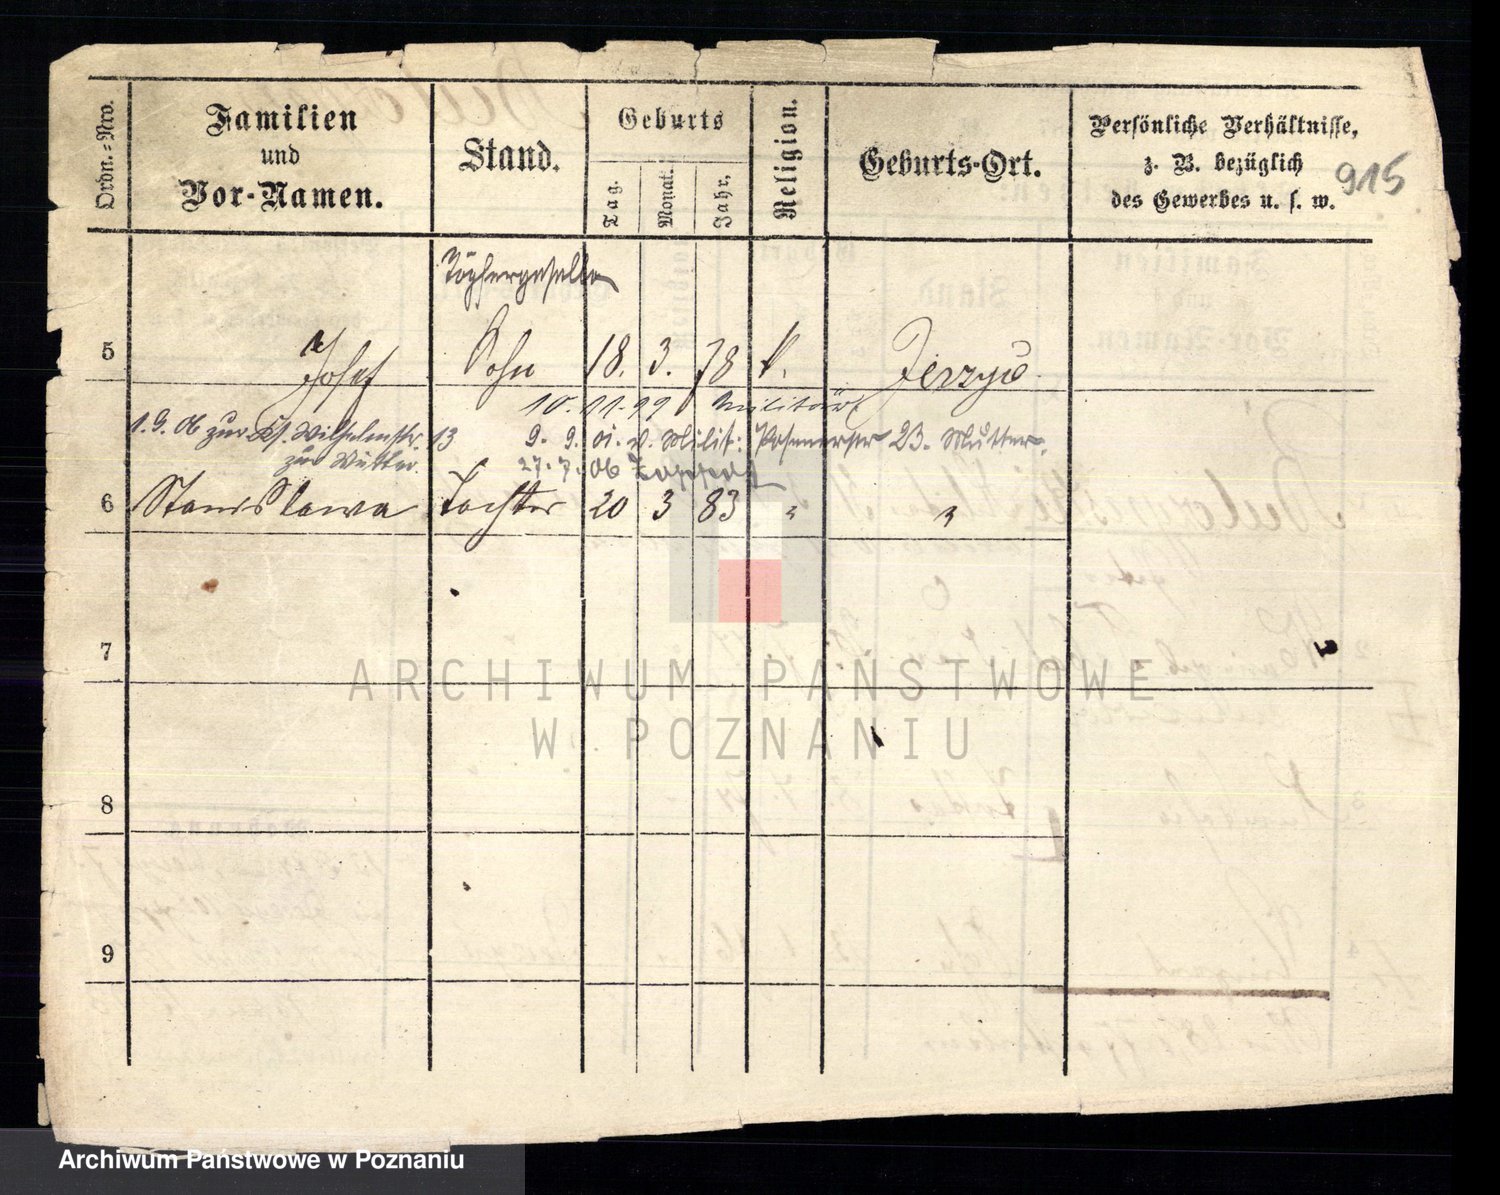 Ordn.=Nro.
Familien
und
Vor-Namen.
Stand.
Geburts
Tag.
Monat.
Jahr.
Religion.
Geburts-Ort.
Persönliche Verhältnisse,
z. B. bezüglich
des Gewerbes u. s. w.
915
Töpfergeselle
5 Josef Sohn 18. 3. 78 k. Jerzyce
10. 11. 99 Militär
1. 9. 06 zur Wilhelmstr. 13 9. 9. 01. v. Milit: Posenerstr 23. Mutter.
zur Mutter. 27. 7. 06
6 Stanislawa Tochter 20 3 83 " "
7
8
9
ARCHIWUM PAŃSTWOWE
W POZNANIU
Archiwum Państwowe w Poznaniu